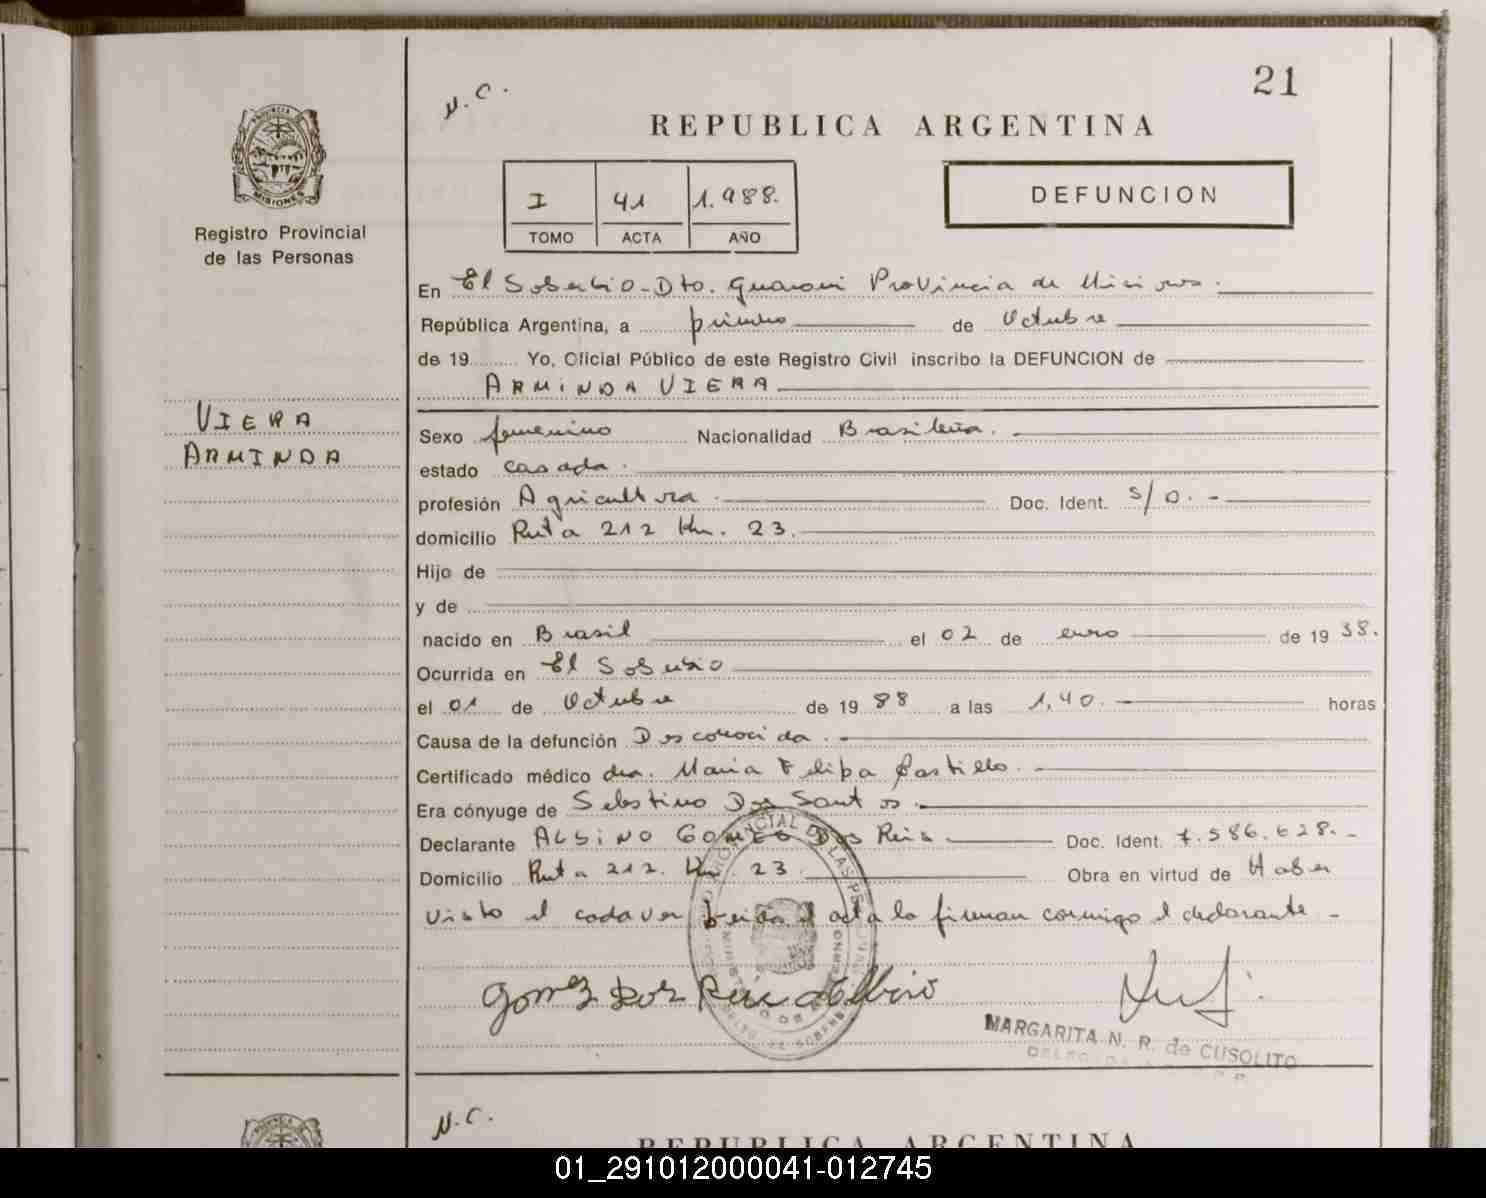 21
N.C.
REPUBLICA ARGENTINA
PROVINCIA DE
MISIONES
DEFUNCION
I 41 1.988.
TOMO ACTA AÑO
Registro Provincial
de las Personas
En El Soberbio - Dto. Guarani Provincia de Misiones.
República Argentina, a primero de Octubre
de 19 Yo, Oficial Público de este Registro Civil inscribo la DEFUNCION de
ARMINDA VIERA
VIERA
ARMINDA
Sexo femenino Nacionalidad Brasileña.
estado casada.
profesión Agricultura. Doc. Ident. s/o.-
domicilio Ruta 212 Km. 23.
Hijo de
y de
nacido en Brasil el 02 de enero de 19 38.
Ocurrida en El Soberbio
el 01 de Octubre de 19 88 a las 1,40. horas
Causa de la defunción Desconocida.
Certificado médico dra. Maria Felipa Castillo.
Era cónyuge de Sebstino Dos Santos.
Declarante ALBINO GOMES Dos Reis Doc. Ident. 7.586.628.-
Domicilio Ruta 212. Km. 23. Obra en virtud de Haber
visto el cadaver leida el acta la firman conmigo el declarante -
gomez Dos Reis Albino
MARGARITA N. R. de CUSOLITO
N.C.
REPUBLICA ARGENTINA
01_291012000041-012745